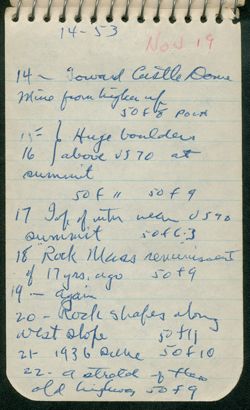 14-53
Nov 19
14 - Toward Castle Dome
Mine from higher up
50 f 8
15 } Huge boulders
16 } above US 70 at
summit
50 f 11 50 f 9
17 Top of mtn near US 70
summit 50 f 6.3
18 "Rock Mass reminiscent
of 17 yrs. ago 50 f 9
19 - again
20 - Rock shapes along
west slope 50 f 11
21 - 1936 scene 50 f 10
22 - a stretch of
old highway 50 f 9